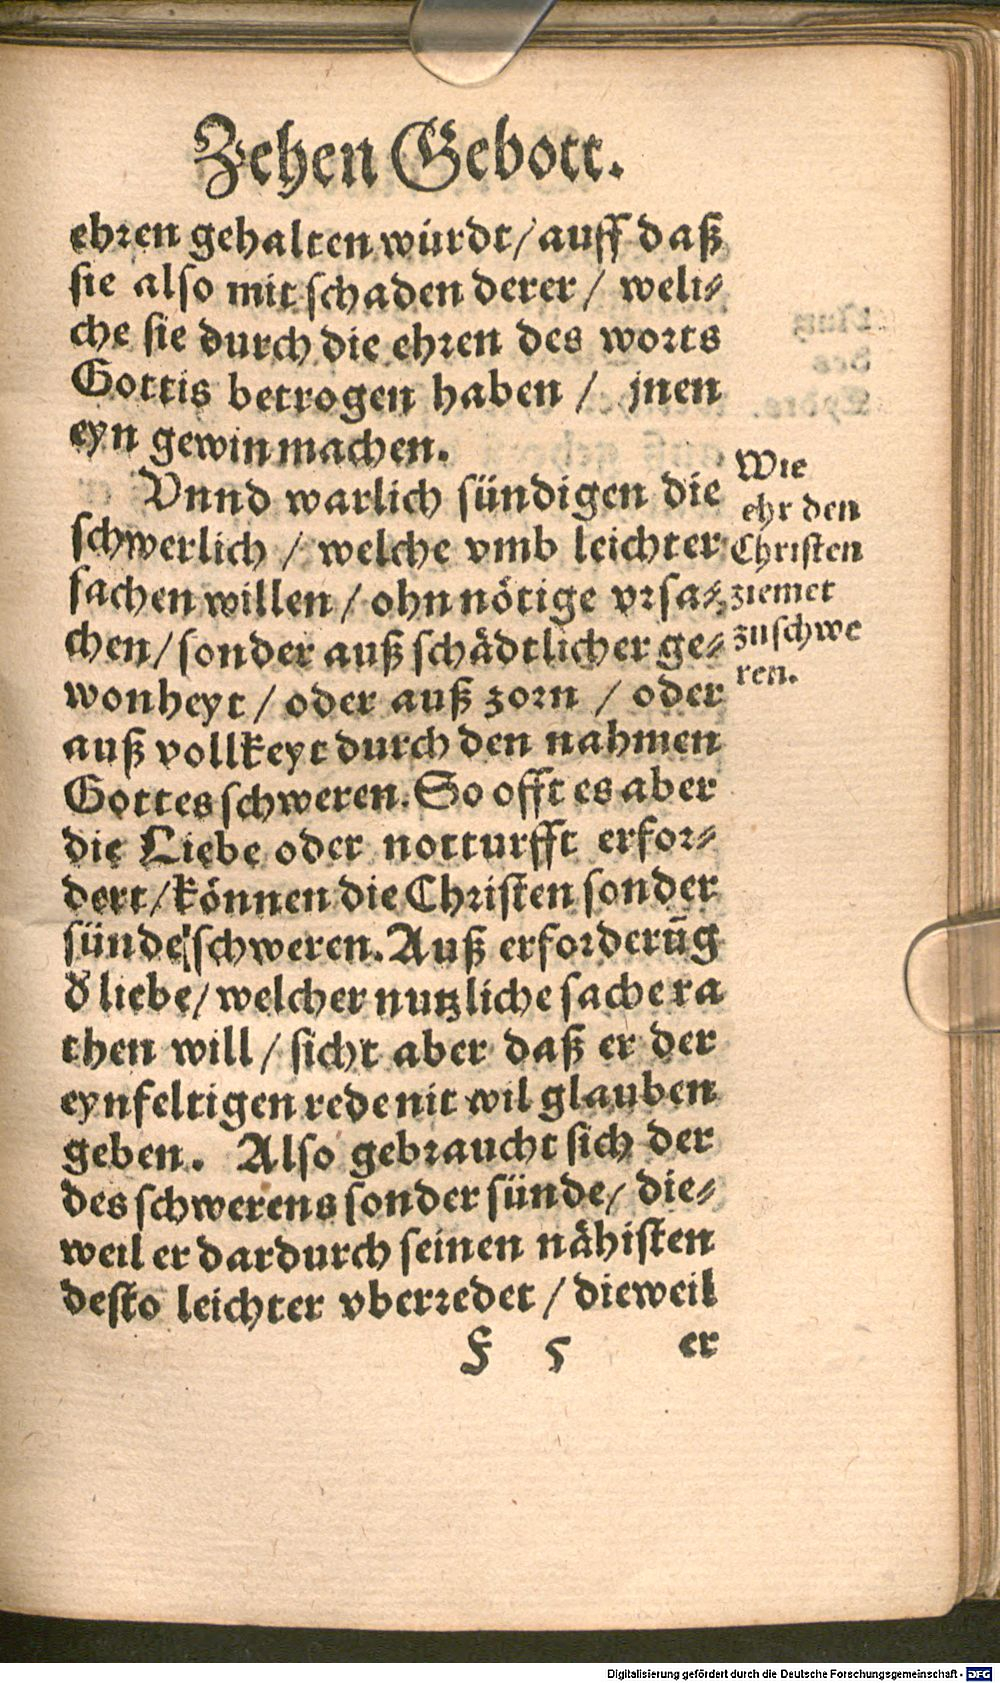 Zehen Gebott.
ehren gehalten würdt/ auff daß
sie also mit schaden derer / weli⸗
che sie durch die ehren des worts
Gottis betrogen haben / jnen
eyn gewin machen.
Vnnd warlich sündigen die
schwerlich / welche vmb leichter
sachen willen / ohn nötige vrsa⸗
chen/ sonder auß schädtlicher ge⸗
wonheyt / oder auß zorn / oder
auß vollkeyt durch den nahmen
Gottes schweren. So offt es aber
die Liebe oder notturfft erfor⸗
dert / können die Christen sonder
sünde schweren. Auß erforderũg
d̕ liebe/ welcher nutzliche sache ra
then will / sicht aber daß er der
eynfeltigen rede nit wil glauben
geben. Also gebraucht sich der
des schwerens sonder sünde/ die⸗
weil er dardurch seinen nähisten
desto leichter vberredet / dieweil
F 5 er
Wie
ehr den
Christen
ziemet
zuschwe
ren.
Digitalisierung gefördert durch die Deutsche Forschungsgemeinschaft - DFG